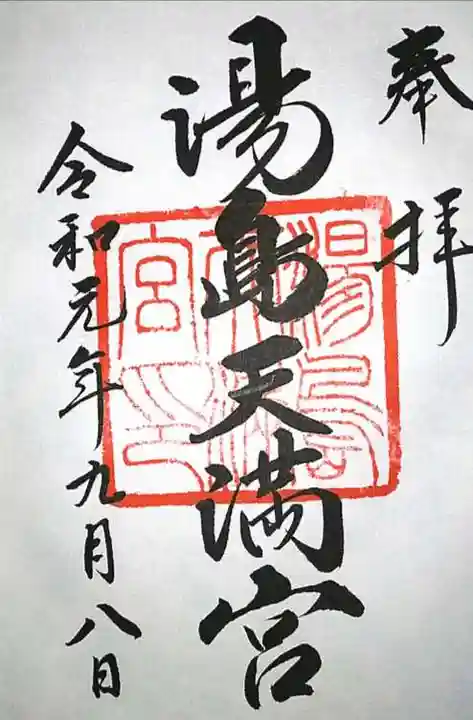 奉拝
湯島天満宮
湯島天満宮印
令和元年九月八日